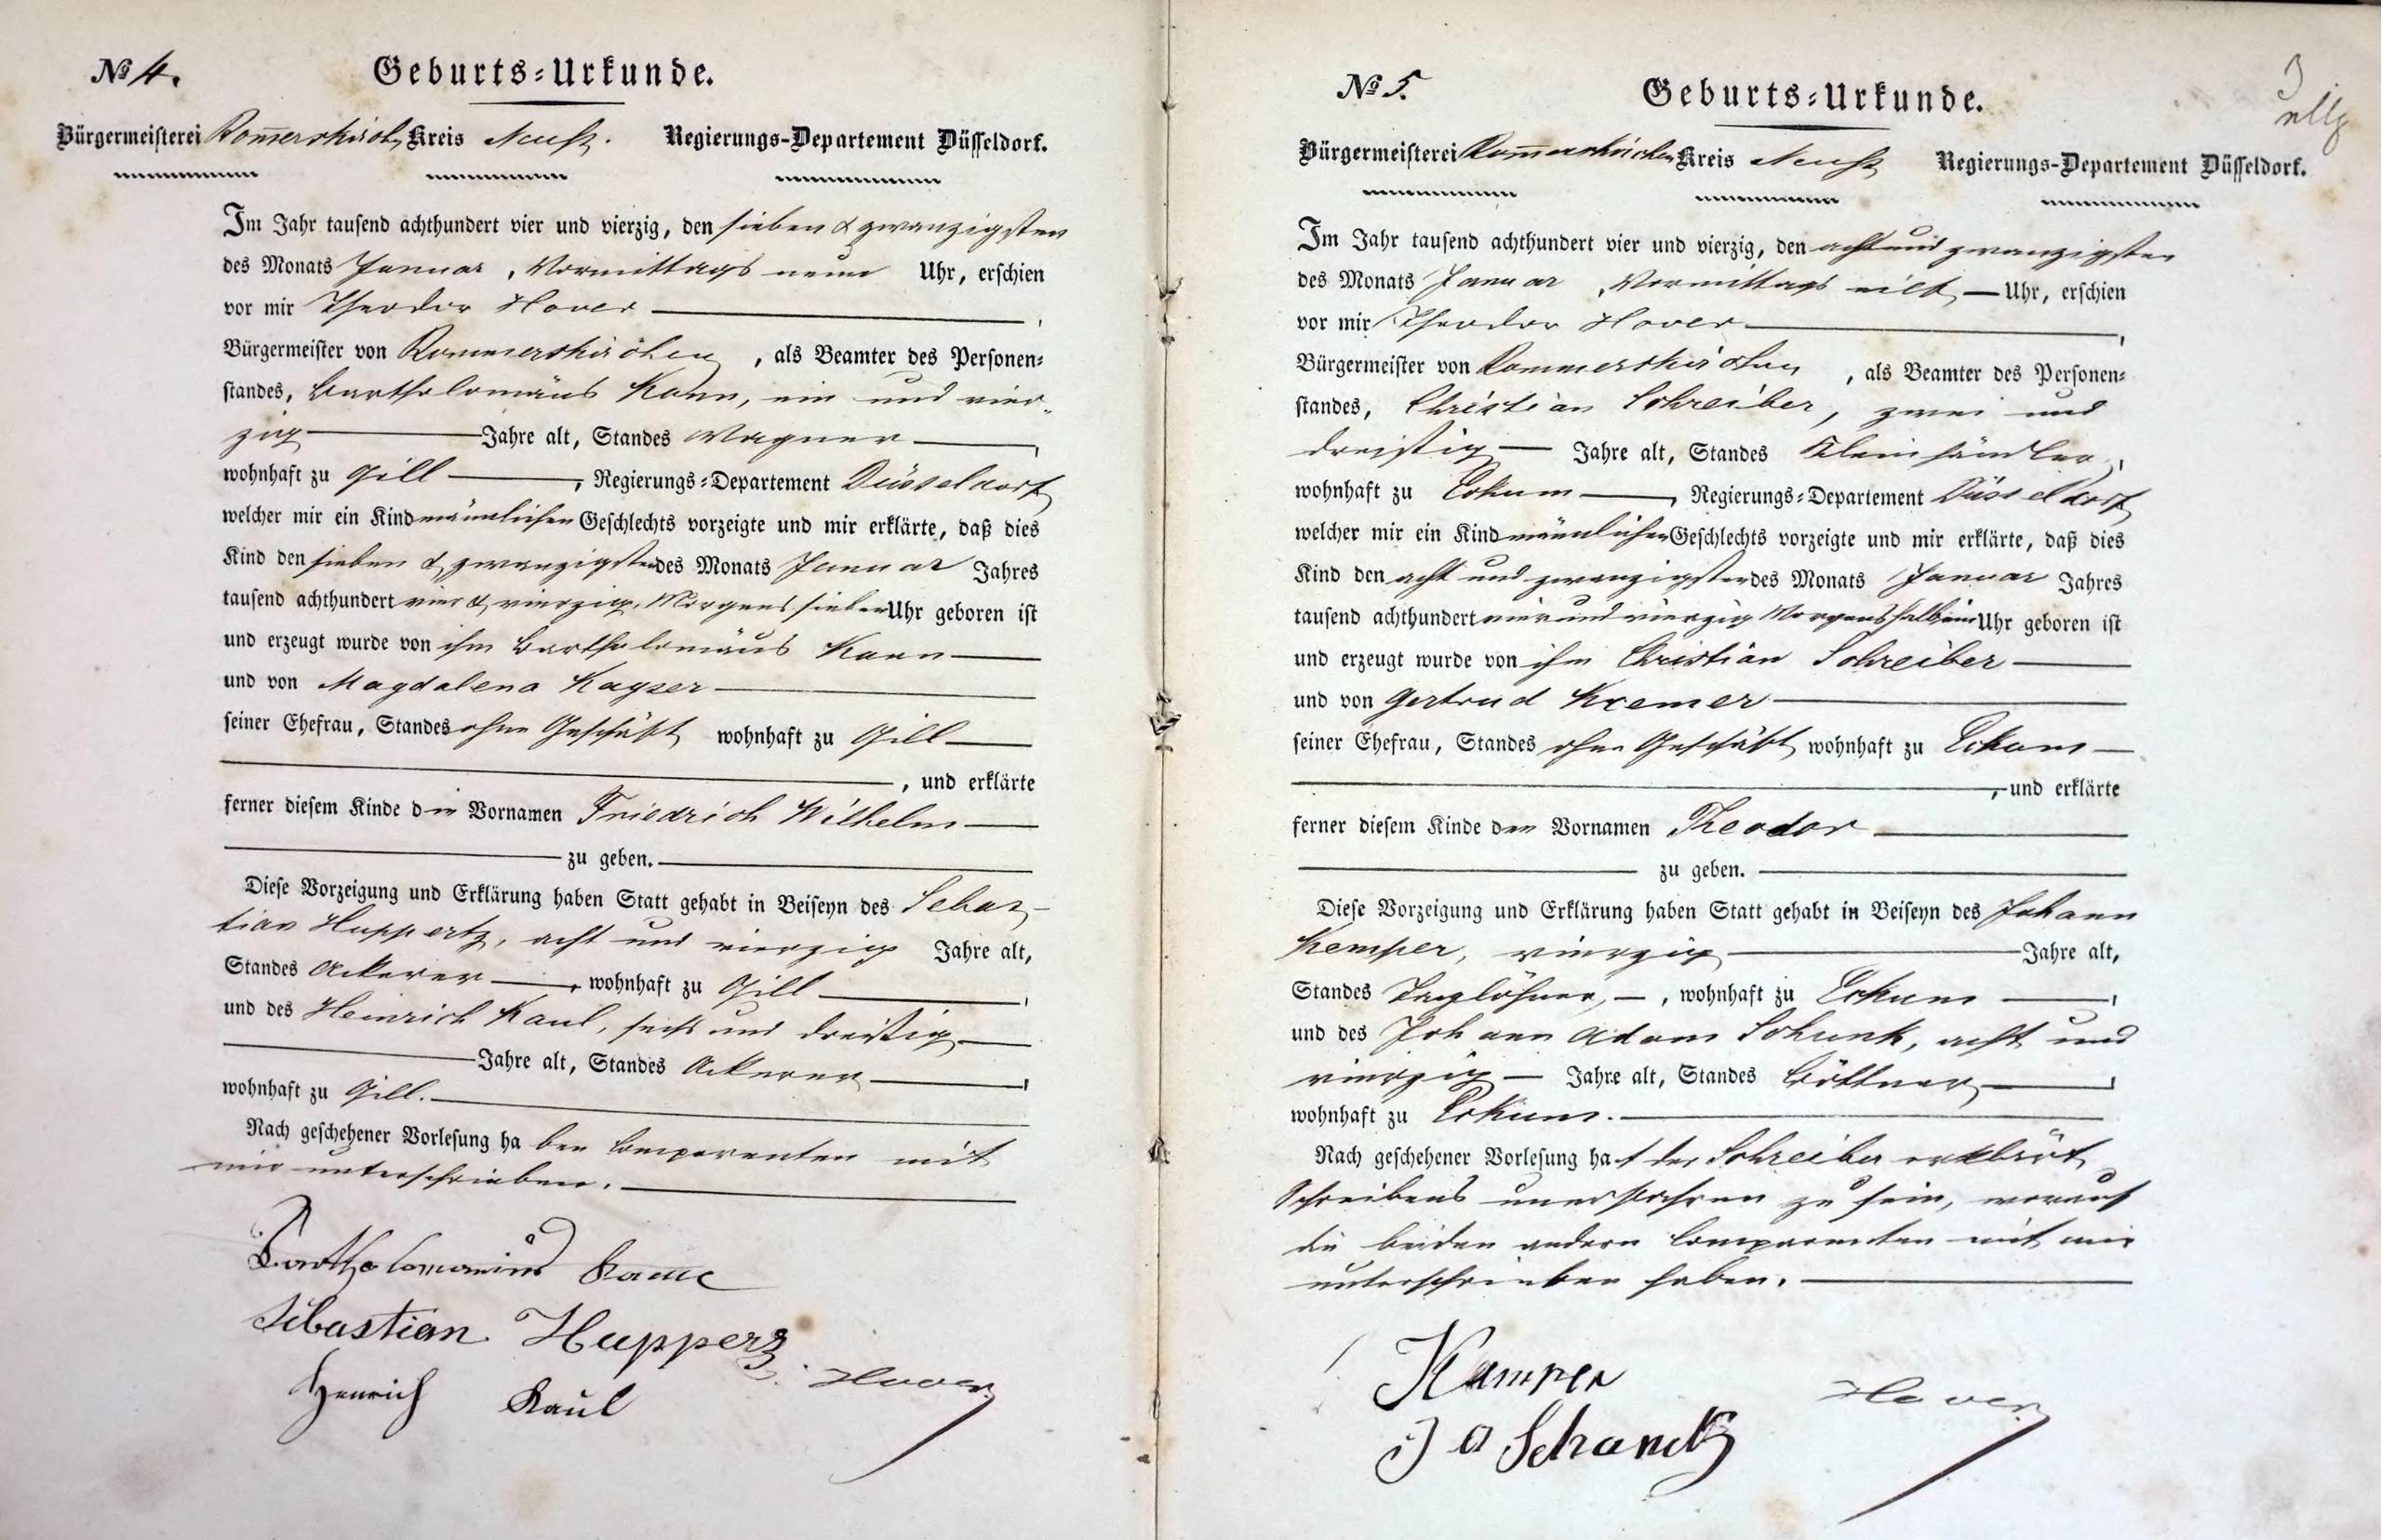 № 4.
Geburts-Urkunde.
Bürgermeisterei Rommerskirchen Kreis Neuß. Regierungs-Departement Düsseldorf.
Im Jahr tausend achthundert vier und vierzig, den sieben & zwanzigsten
des Monats Januar, Vormittags neun Uhr, erschien
vor mir Theodor Hover,
Bürgermeister von Rommerskirchen, als Beamter des Personen-
standes, Bartholomäus Kann, ein und vier-
zig Jahre alt, Standes Wagner,
wohnhaft zu Gill, Regierungs-Departement Düsseldorf
welcher mir ein Kind männlichen Geschlechts vorzeigte und mir erklärte, daß dies
Kind den sieben & zwanzigsten des Monats Januar Jahres
tausend achthundert vier & vierzig, Morgens sieben Uhr geboren ist
und erzeugt wurde von ihm Bartholomäus Kann
und von Magdalena Kayser
seiner Ehefrau, Standes ohne Geschäft wohnhaft zu Gill
, und erklärte
ferner diesem Kinde die Vornamen Friedrich Wilhelm
zu geben.
Diese Vorzeigung und Erklärung haben Statt gehabt in Beiseyn des Sebas-
tian Huppertz, acht und vierzig Jahre alt,
Standes Ackerer, wohnhaft zu Gill,
und des Heinrich Kaul, sechs und dreißig
Jahre alt, Standes Ackerer,
wohnhaft zu Gill.
Nach geschehener Vorlesung haben Comparenten mit
mir unterschrieben.
Bartholomäus
Sebastian Hupperz
Henrich Kaul
Hover
№ 5.
Geburts-Urkunde.
Bürgermeisterei Rommerskirchen Kreis Neuß Regierungs-Departement Düsseldorf.
Im Jahr tausend achthundert vier und vierzig, den acht und zwanzigsten
des Monats Januar, Vormittags eilf Uhr, erschien
vor mir Theodor Hover,
Bürgermeister von Rommerskirchen, als Beamter des Personen-
standes, Christian Schreiber, zwei und
dreißig Jahre alt, Standes Kleinhändler,
wohnhaft zu Eckum, Regierungs-Departement Düsseldorf
welcher mir ein Kind männlichen Geschlechts vorzeigte und mir erklärte, daß dies
Kind den acht und zwanzigsten des Monats Januar Jahres
tausend achthundert vier und vierzig Morgens halb ein Uhr geboren ist
und erzeugt wurde von ihm Christian Schreiber
und von Gertrud Kremer
seiner Ehefrau, Standes ohne Geschäft wohnhaft zu Eckum
, und erklärte
ferner diesem Kinde den Vornamen Theodor
zu geben.
Diese Vorzeigung und Erklärung haben Statt gehabt in Beiseyn des Johann
Kemper, vierzig Jahre alt,
Standes Taglöhner, wohnhaft zu Eckum,
und des Johann Adam Schunk, acht und
vierzig Jahre alt, Standes Böttner,
wohnhaft zu Eckum.
Nach geschehener Vorlesung hat der Schreiber erklärt
Schreibens unerfahren zu sein, worauf
die beiden andern Comparenten mit mir
unterschrieben haben.
Kamper
J A
Hover